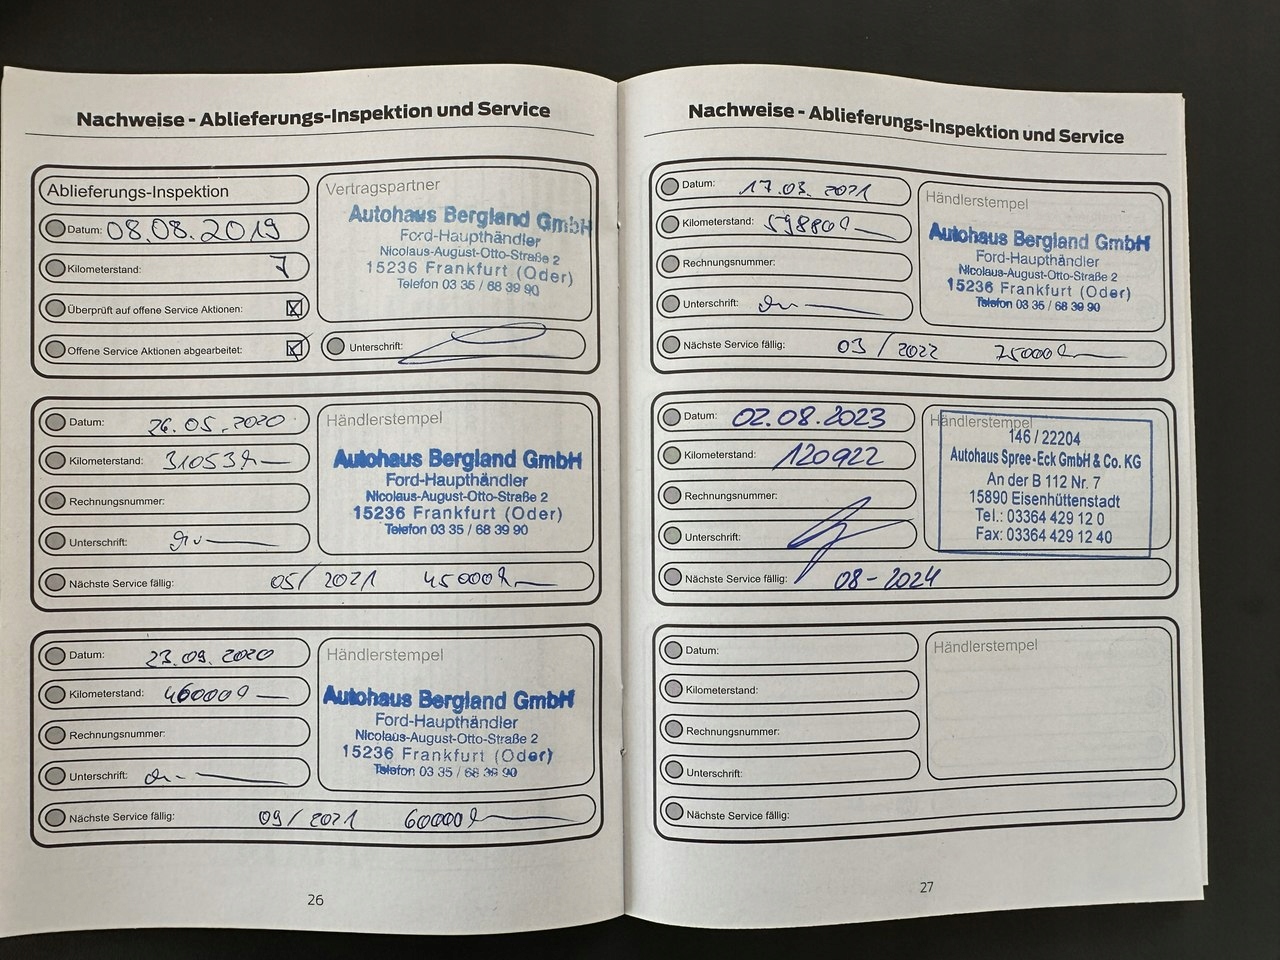 Nachweise - Ablieferungs-Inspektion und Service
Ablieferungs-Inspektion
Datum: 08.08.2019
Kilometerstand: 7
Überprüft auf offene Service Aktionen:
Offene Service Aktionen abgearbeitet:
Vertragspartner
Autohaus Bergland GmbH
Ford-Haupthändler
Nicolaus-August-Otto-Straße 2
15236 Frankfurt (Oder)
Telefon 03 35 / 68 39 90
Unterschrift:
Datum: 26.05.2020
Kilometerstand: 31053
Rechnungsnummer:
Unterschrift:
Händlerstempel
Autohaus Bergland GmbH
Ford-Haupthändler
Nicolaus-August-Otto-Straße 2
15236 Frankfurt (Oder)
Telefon 03 35 / 68 39 90
Nächste Service fällig: 05/2021 45000
Datum: 23.09.2020
Kilometerstand: 46000
Rechnungsnummer:
Unterschrift:
Händlerstempel
Autohaus Bergland GmbH
Ford-Haupthändler
Nicolaus-August-Otto-Straße 2
15236 Frankfurt (Oder)
Telefon 03 35 / 68 39 90
Nächste Service fällig: 09/2021 60000
26
Nachweise - Ablieferungs-Inspektion und Service
Datum: 17.03.2021
Kilometerstand: 59880
Rechnungsnummer:
Unterschrift:
Händlerstempel
Autohaus Bergland GmbH
Ford-Haupthändler
Nicolaus-August-Otto-Straße 2
15236 Frankfurt (Oder)
Telefon 03 35 / 68 39 90
Nächste Service fällig: 03/2022 75000
Datum: 02.08.2023
Kilometerstand: 120922
Rechnungsnummer:
Unterschrift:
Händlerstempel
146 / 22204
Autohaus Spree-Eck GmbH & Co. KG
An der B 112 Nr. 7
15890 Eisenhüttenstadt
Tel.: 03364 429 12 0
Fax: 03364 429 12 40
Nächste Service fällig: 08-2024
Datum:
Kilometerstand:
Rechnungsnummer:
Unterschrift:
Händlerstempel
Nächste Service fällig:
27